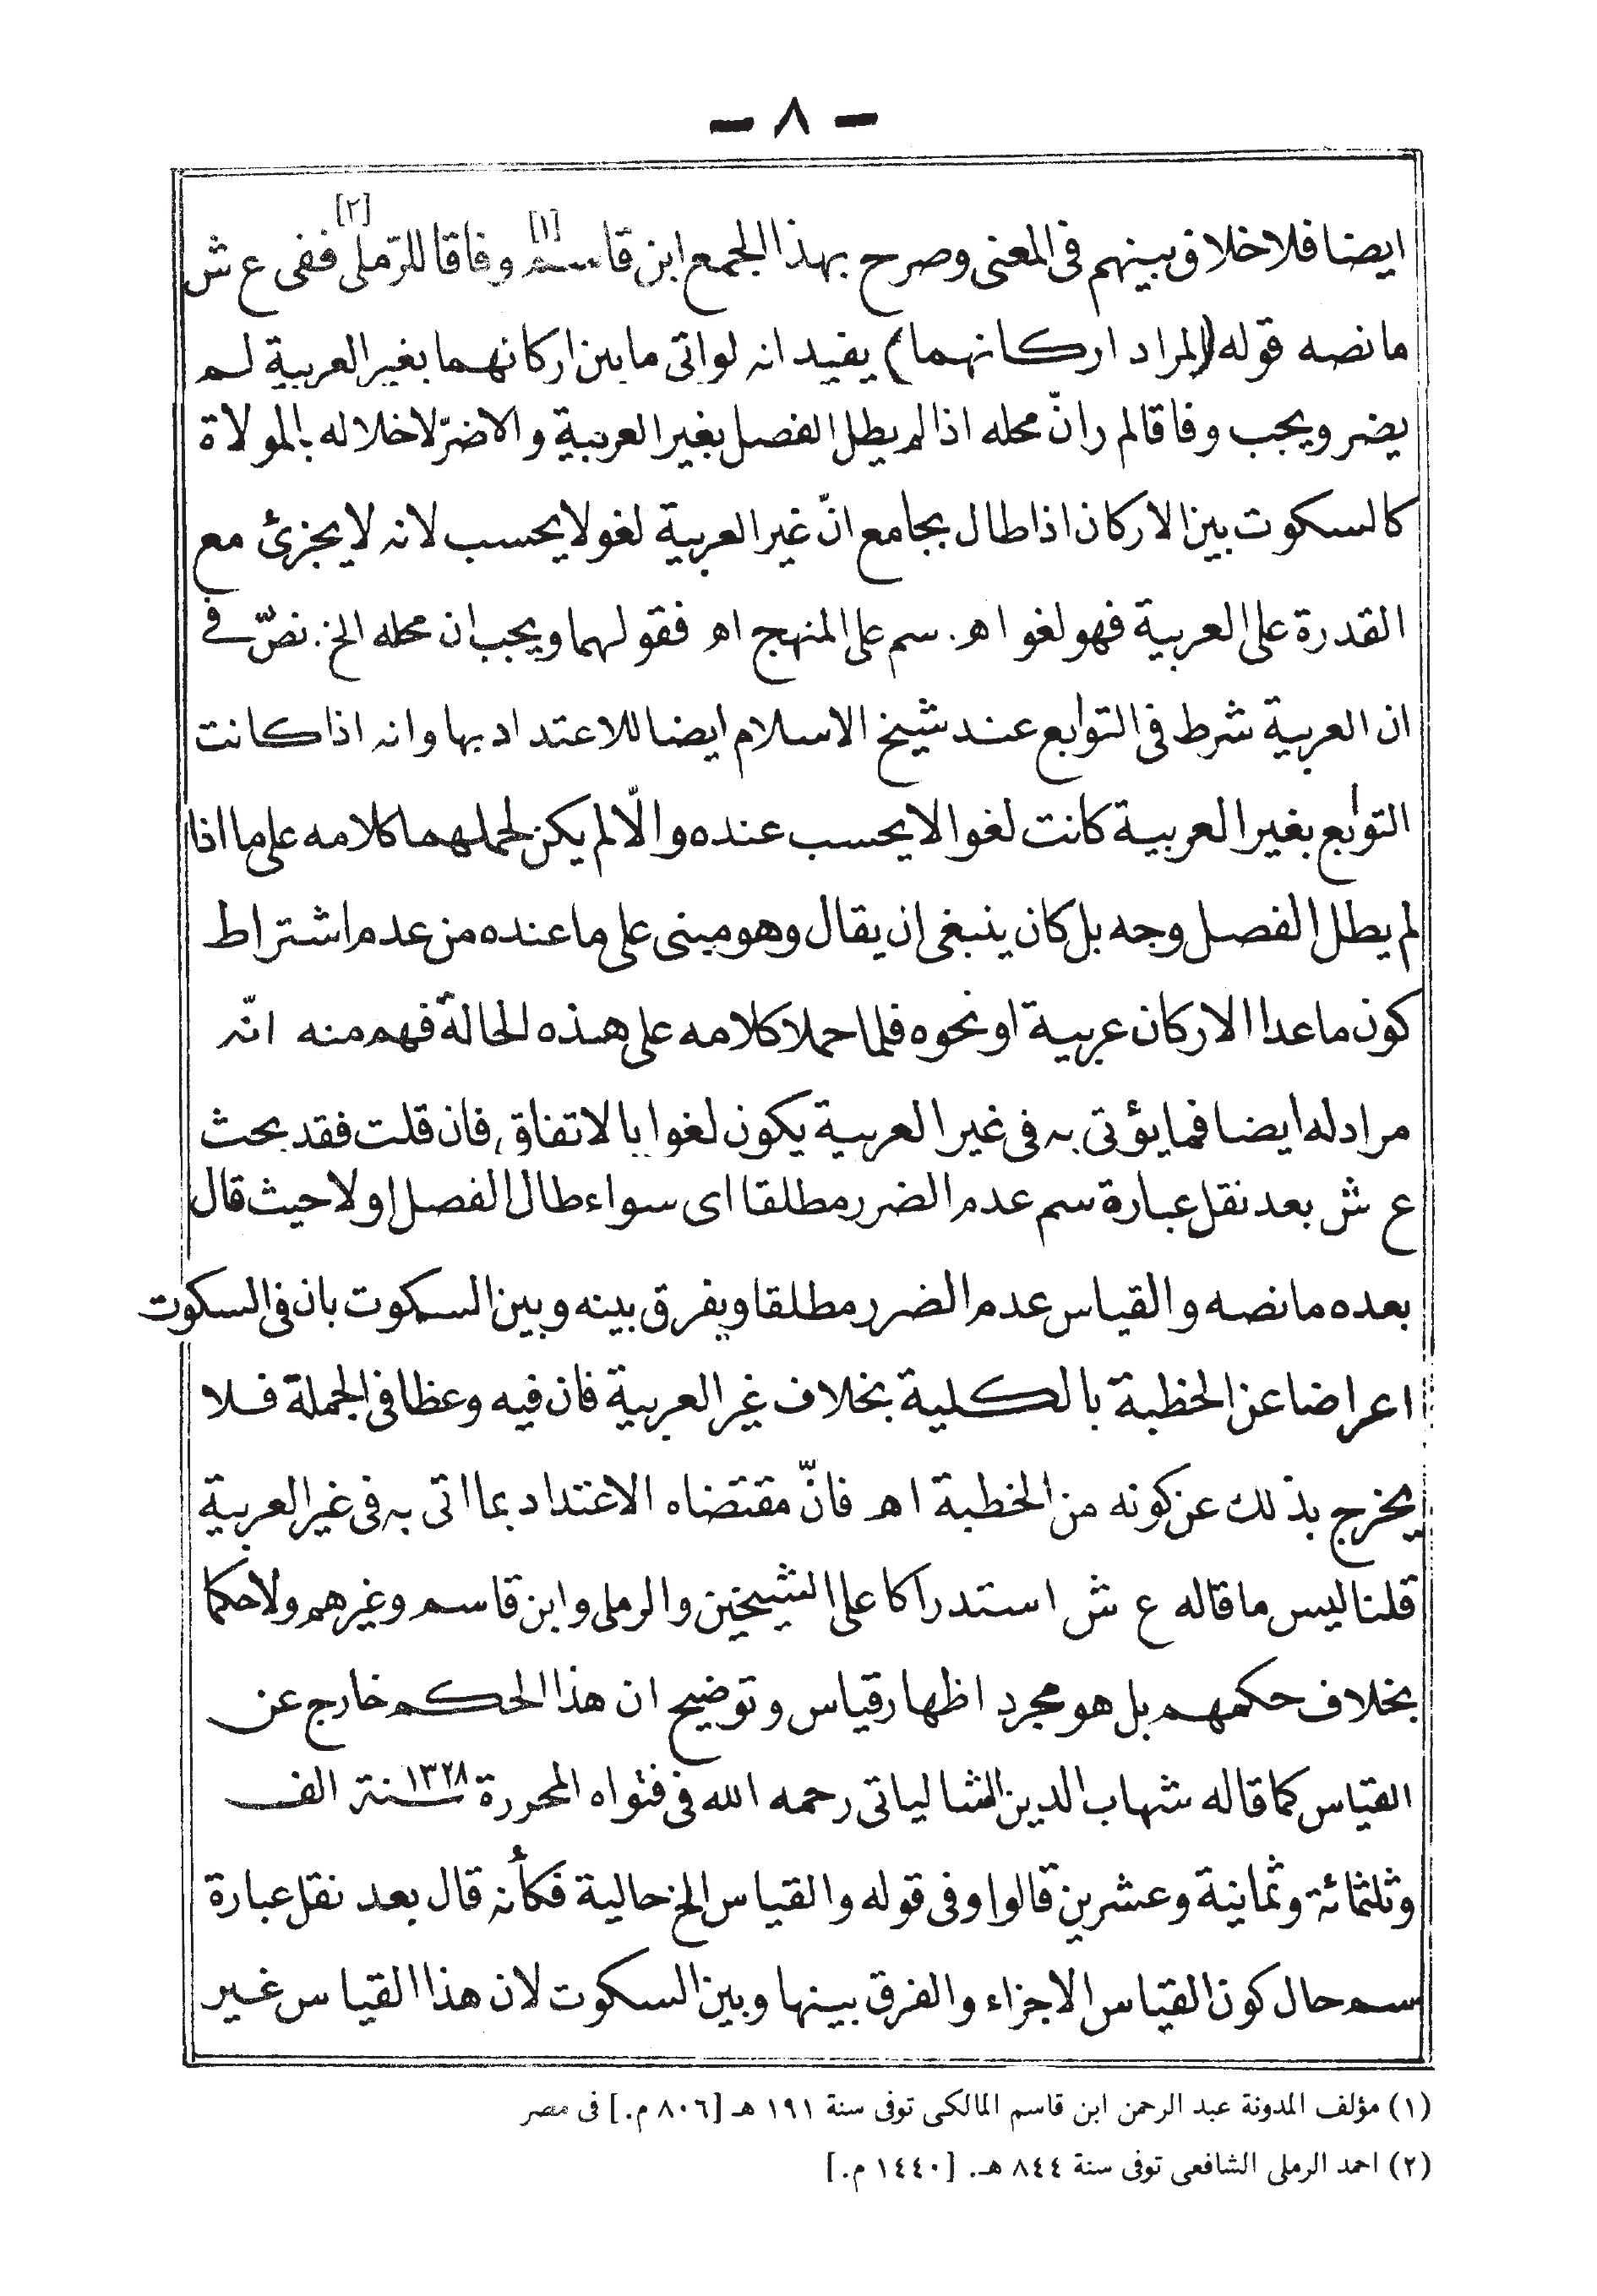 - ٨ -
ايضا فلا خلاف بينهم فى المعنى وصرح بهذا الجمع ابن قاسم [١] وفاقا للرّملى [٢] ففى ع ش
ما نصه قوله (المراد اركانهما) يفيد انه لو اتى ما بين اركانهما بغير العربية لم
يضر ويجب وفاقا لم ر انّ محله اذا لم يطل الفصل بغير العربية والا ضرّ لاخلاله بالمولاة
كالسكوت بين الاركان اذا طال بجامع انّ غير العربية لغو لا يحسب لانه لا يجزئ مع
القدرة على العربية فهو لغو اهـ. سم على المنهج اهـ فقولهما ويجب ان محله الخ. نصّ فى
ان العربية شرط فى التوابع عند شيخ الاسلام ايضا للاعتداد بها وانه اذا كانت
التوابع بغير العربية كانت لغوا لا يحسب عنده والّا لم يكن لحملهما كلامه على ما اذا
لم يطل الفصل وجه بل كان ينبغى ان يقال وهو مبنى على ما عنده من عدم اشتراط
كون ما عدا الاركان عربية او نحوه فلما حملا كلامه على هذه الحالة فهم منه انّه
مراد له ايضا فما يؤتى به فى غير العربية يكون لغوا بالاتفاق فان قلت فقد بحث
ع ش بعد نقل عبارة سم عدم الضرر مطلقا اى سواء طال الفصل او لا حيث قال
بعده ما نصه والقياس عدم الضرر مطلقا ويفرق بينه وبين السكوت بان فى السكوت
اعراضا عن الخظبة بالكلية بخلاف غير العربية فان فيه وعظا فى الجملة فلا
يخرج بذلك عن كونه من الخطبة اهـ فانّ مقتضاه الاعتداد بما اتى به فى غير العربية
قلنا ليس ما قاله ع ش استدراكا على الشيخين والرملى وابن قاسم وغيرهم ولا حكما
بخلاف حكمهم بل هو مجرد اظهار قياس وتوضيح ان هذا الحكم خارج عن
القياس كما قاله شهاب الدين الشالياتى رحمه الله فى فتواه المحررة ١٣٢٨ سنة الف
وثلثمائة وثمانية وعشرين قالوا وفى قوله والقياس الخ حالية فكأنه قال بعد نقل عبارة
سم حال كون القياس الاجزاء والفرق بينها وبين السكوت لان هذا القياس غير
(١) مؤلف المدونة عبد الرحمن ابن قاسم المالكى توفى سنة ١٩١ هـ [٨٠٦ م.] فى مصر
(٢) احمد الرملى الشافعى توفى سنة ٨٤٤ هـ. [١٤٤٠ م.]